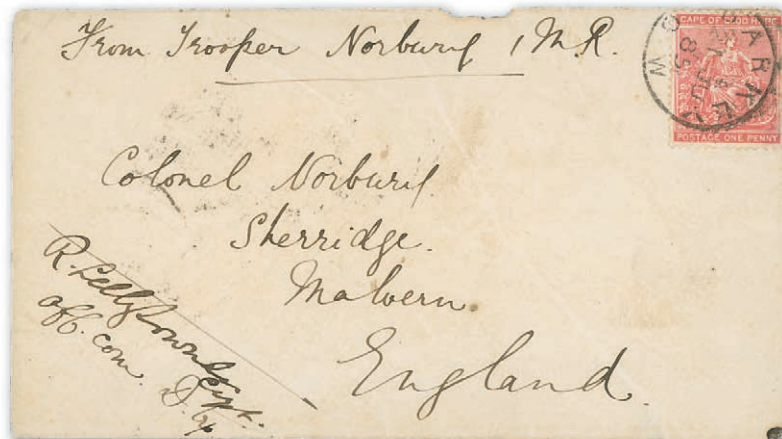 From Trooper Norbury 1 M.R.
CAPE OF GOOD HOPE
POSTAGE ONE PENNY
BARKLY
W
85
Colonel Norbury
Sherridge.
Malvern.
England.
R.
off. com.